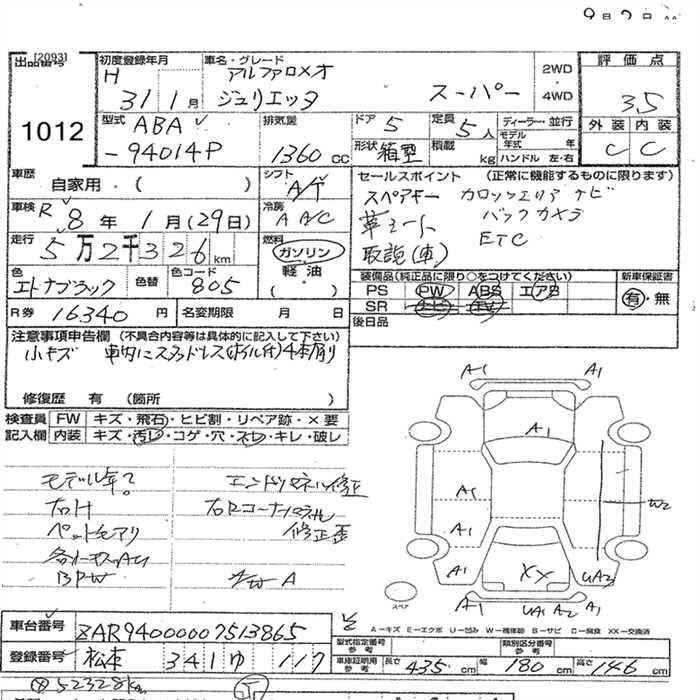 [2093]
出品番号
1012
初度登録年月
H 31 1月
車名・グレード
アルファロメオ
ジュリエッタ スーパー
2WD
4WD
評価点
3.5
外装 内装
C C
型式
ABA
-94014P
排気量
1360 CC
ドア 5
定員 5人
形状 箱型
積載 kg
ディーラー・並行
モデル年式 年
ハンドル 左・右
車歴
自家用・( )
シフト
A/T
車検 R 8年 1月(29日)
冷房
A A/C
走行 5万2千326km
燃料
ガソリン
軽油
( )
色
エトナブラック
色替
色コード
805
R券 16340円
名変期限 月 日
セールスポイント (正常に機能するものに限ります)
スペアキー カロッツェリア ナビ
革シート バックカメラ
取説(車) ETC
装備品(純正品に限り○をつけてください)
PS PW ABS エアB
SR ナビ TV
新車保証書
有・無
後日品
注意事項申告欄 (不具合内容等は具体的に記入して下さい)
小キズ 車内にスタッドレス(ホイル付)4本有り
修復歴 有 (箇所 )
検査員記入欄
FW キズ・飛石・ヒビ割・リペア跡・×要
内装 キズ・汚レ・コゲ・穴・スレ・キレ・破レ
モデル年?
右H
ペットモアリ
BPW
エンドパネル修正
右Rコーナーパネル
修正歪
A
A1 A1
A1
A1
A1
W2
A1 XX UA2
UA1 A2 A1
スペア
A-キズ E-エクボ U-凹み W-補修跡 S-サビ C-腐食 XX-交換済
車台番号 ZAR94000007513865
登録番号 松本 341 ゆ 117
型式指定番号 参考
類別区分番号 参考
車庫証明用 参考
長さ 435cm 幅 180cm 高さ 146cm
52328km